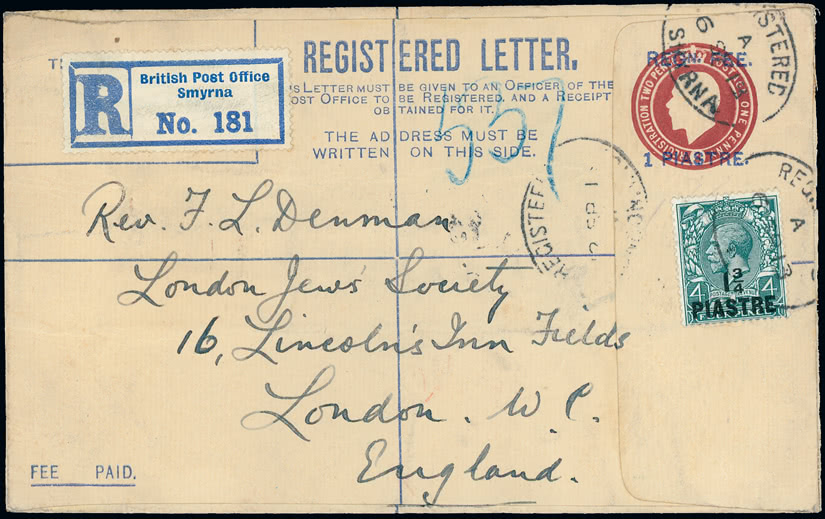 TH
REGISTERED LETTER.
S LETTER MUST BE GIVEN TO AN OFFICER OF THE
OST OFFICE TO BE REGISTERED, AND A RECEIPT
OBTAINED FOR IT.
THE ADDRESS MUST BE
WRITTEN ON THIS SIDE.
R
British Post Office
Smyrna
No. 181
557
REGN. FEE.
REGISTRATION TWO PENCE POSTAGE ONE PENNY
1 PIASTRE.
REGISTERED
A
6 SP 13
SMYRNA
4 4
1 3/4
PIASTRE
A
REGISTERED
SP 1
Rev. F. L. Denman
London Jews' Society
16, Lincoln's Inn Fields
London. W. C.
England.
FEE PAID.